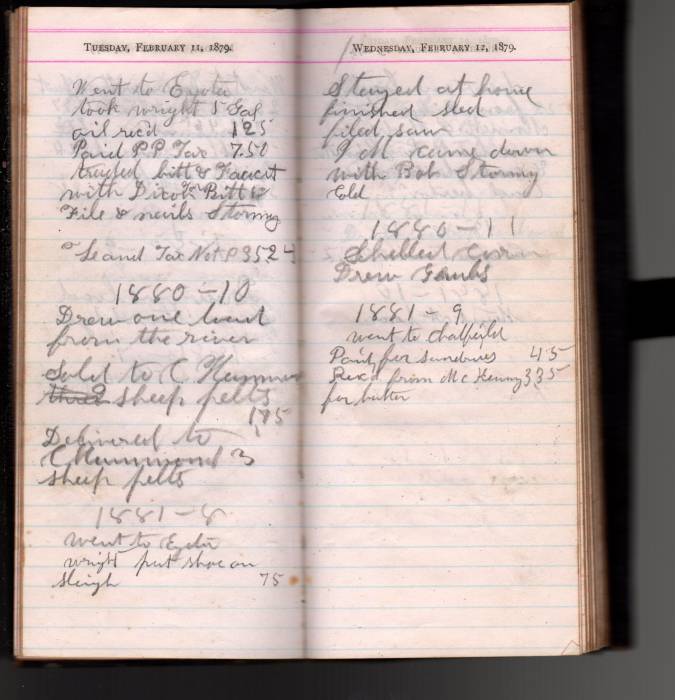 TUESDAY, FEBRUARY 11, 1879.
Went to Eyota
took wright 5 Gal
oil rec'd 125
Paid P.P. Tax 7.50
traded bitt & Faucit
with Dixon for Bitt &
File & nails Stormy
Land Tax Not P 3524
1880 - 10
Drew one load
from the river
Sold to C Hammon
three sheep pelts
175
Delivered to
C Hammond 3
sheep pelts
1881 - 8
went to Eyota
wright put shoe on
sleigh 75
WEDNESDAY, FEBRUARY 12, 1879.
Stayed at home
finished sled
filed saw
J M came down
with Bob Stormy
Cold
1880 - 11
Shelled corn
Drew
1881 - 9
went to Chatfield
Paid for sundries 45
Rec'd from Mc Kenny 335
for butter